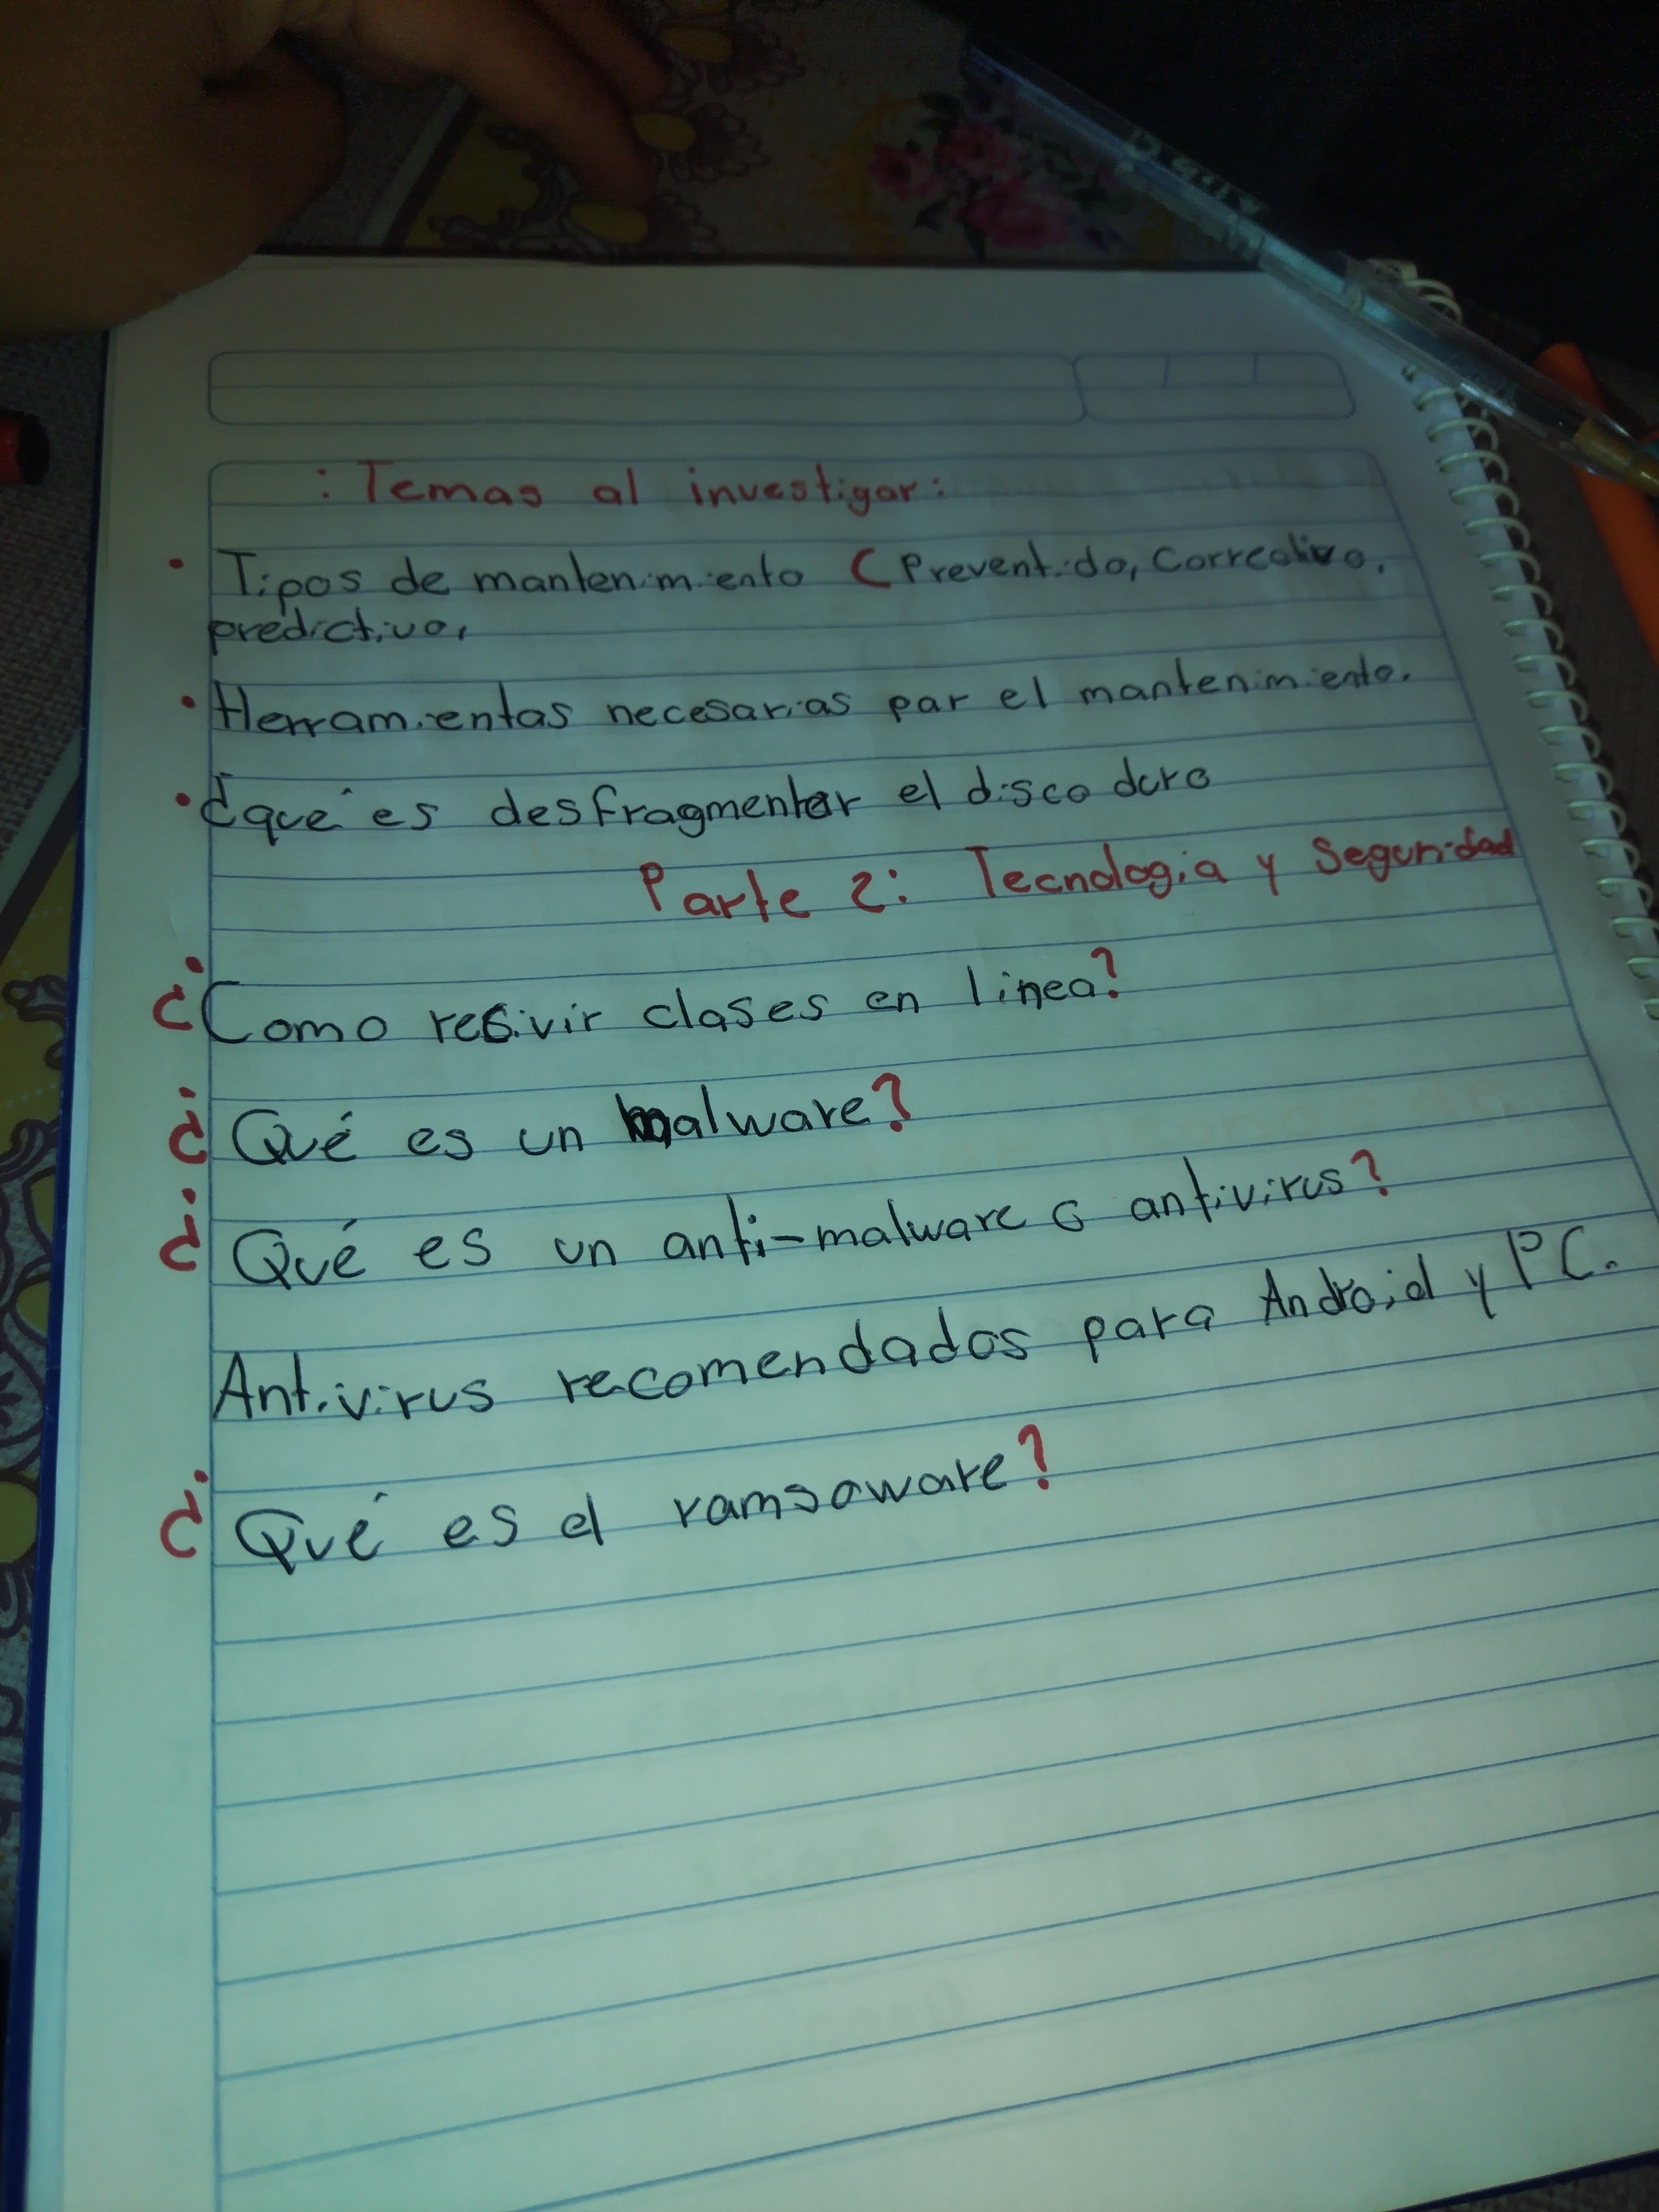 : Temas al investigar:
• Tipos de mantenimiento ( Preventido, Correctivo,
predictivo,
• Herramientas necesarias par el mantenimiento.
• ¿qué es desfragmentar el disco duro
Parte 2: Tecnología y Seguridad
¿Como recivir clases en linea?
¿Qué es un malware?
¿Qué es un anti-malware o antivirus?
Antivirus recomendados para Android y PC.
¿Qué es el ramsoware?